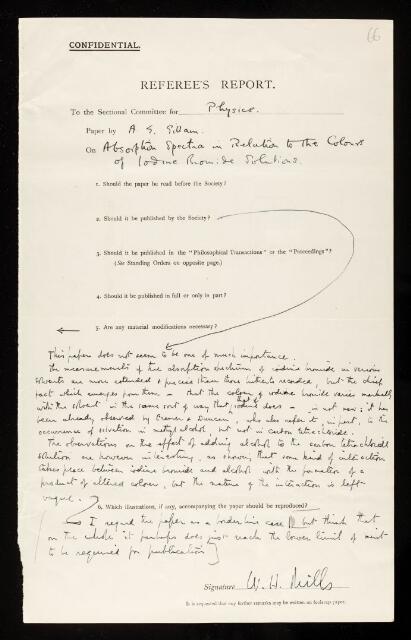 66
CONFIDENTIAL.
REFEREE'S REPORT.
To the Sectional Committee for Physics.
Paper by A. E. Gillam.
On Absorption Spectra in Relation to the Colours
of Iodine Bromide Solutions.
1. Should the paper be read before the Society?
2. Should it be published by the Society?
3. Should it be published in the "Philosophical Transactions" or the "Proceedings"?
(See Standing Orders on opposite page.)
4. Should it be published in full or only in part?
5. Are any material modifications necessary?
This paper does not seem to be one of much importance.
The measurements of the absorption spectrum of iodine bromide in various
solvents are more extended & precise than those hitherto recorded, but the chief
fact which emerges from them – that the colour of iodine bromide varies markedly
with the solvent in the same sort of way that that of iodine does – is not new: it has
been already observed by Cramer & Duncan, who also refer it, in part, to the
occurrence of solvation in ethyl alcohol but not in carbon tetrachloride.
The observations on the effect of adding alcohol to the carbon tetrachloride
solution are however interesting, as showing that some kind of interaction
takes place between iodine bromide and alcohol with the formation of a
product of altered colour, but the nature of the interaction is left
vague.
6. Which illustrations, if any, accompanying the paper should be reproduced?
I regard the paper as a border line case but think that
on the whole it perhaps does just reach the lower limit of merit
to be required for publication
Signature W. H. Mills
It is requested that any further remarks may be written on foolscap paper.